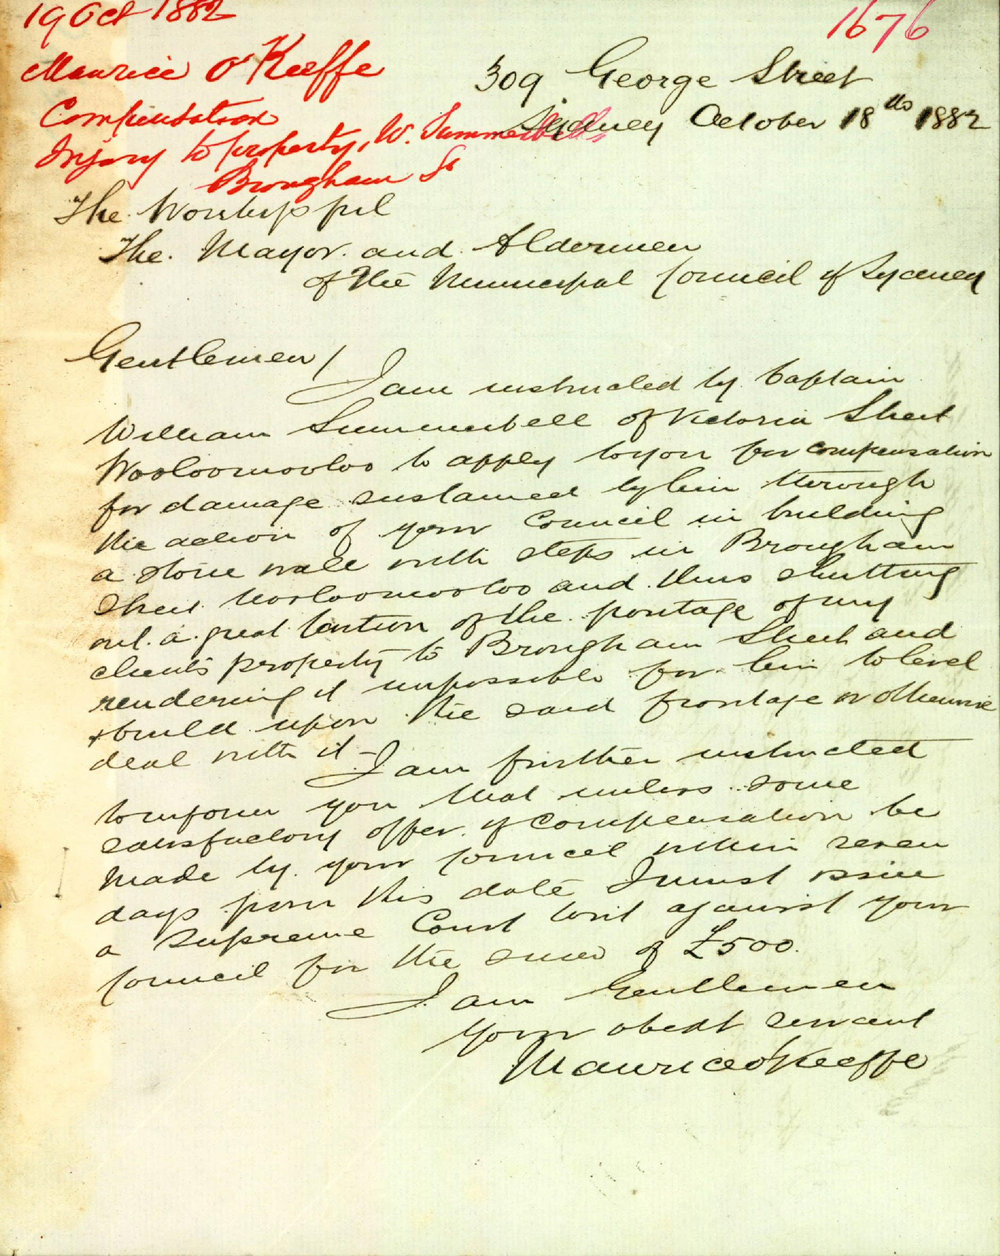 19 Oct 1882
1676
Maurice O'Keeffe
Compensation
Injury to property, W. Summerbells
Brougham St
309 George Street
Sydney October 18th 1882
The Worshipful
The Mayor and Aldermen
of the Municipal Council of Sydney
Gentlemen/
I am instructed by Captain
William Summerbell of Victoria Street
Wooloomooloo to apply to you for compensation
for damage sustained by him through
the action of your Council in building
a stone wall with steps in Brougham
Street Wooloomooloo and thus shutting
out a great portion of the frontage of my
clients property to Brougham Street and
rendering it impossible for him to level
& build upon the said frontage or otherwise
deal with it -
I am further instructed
to inform you that unless some
satisfactory offer of compensation be
made by your Council within seven
days from this date I must issue
a Supreme Court Writ against your
Council for the sum of £500.
I am Gentlemen
Your obedt servant
Maurice O'Keeffe